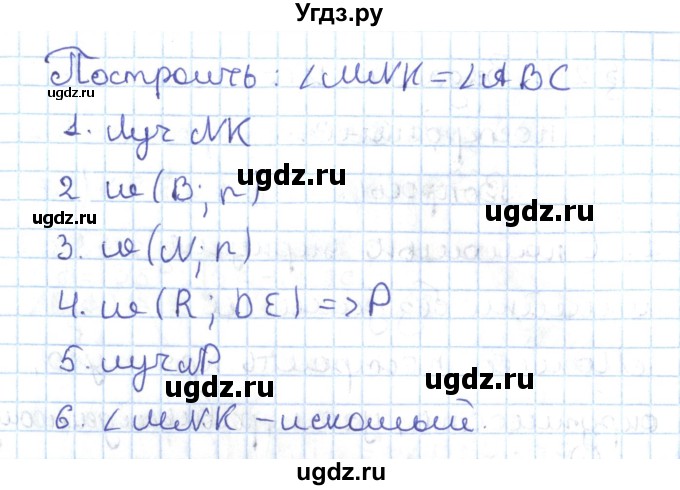 Угдз.ру
Построить: ∠MNK = ∠ABC
ugdz.ru
ugdz.ru
1. Луч NK
ugdz.ru
2 ω(B; r)
ugdz.ru
ugdz.ru
3. ω(N; r)
ugdz.ru
4. ω(R; DE) => P
ugdz.ru
ugdz.ru
5. луч NP
ugdz.ru
ugdz.ru
6. ∠MNK - искомый.
ugdz.ru